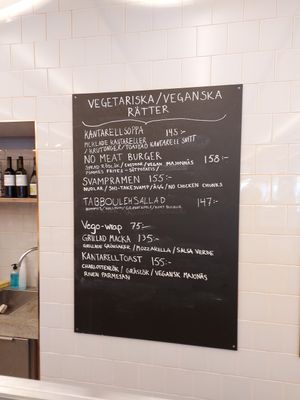 VEGETARISKA/VEGANSKA
RÄTTER
KANTARELLSOPPA 145:-
PICKLADE KANTARELLER
/KRUTONGER/TOASTAD KANTARELL SNITT
NO MEAT BURGER 158:-
/VEGAN MAJONNÄS
POMMES FRITES -
SVAMPRAMEN 155:-
NUDLAR/SHIITAKESVAMP/ÄGG/NO CHICKEN CHUNKS
TABBOULEHSALLAD 147:-
Vego-wrap 75:-
GRILLAD MACKA 135:-
GRILLADE GRÖNSAKER/MOZZARELLA/SALSA VERDE
KANTARELLTOAST 155:-
CHARLOTTENLÖK/GRÄSLÖK/VEGANSK MAJONÄS
RIVEN PARMESAN